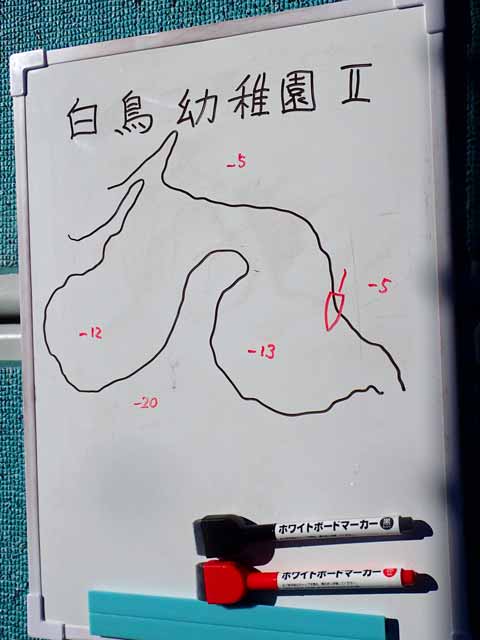 白鳥幼稚園 Ⅱ
-5
-5
-12
-13
-20
ホワイトボードマーカー 黒
ホワイトボードマーカー